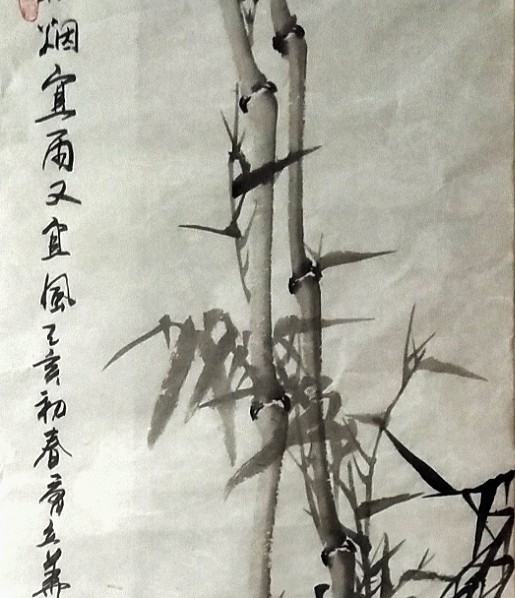 烟宜雨又宜风己亥初春